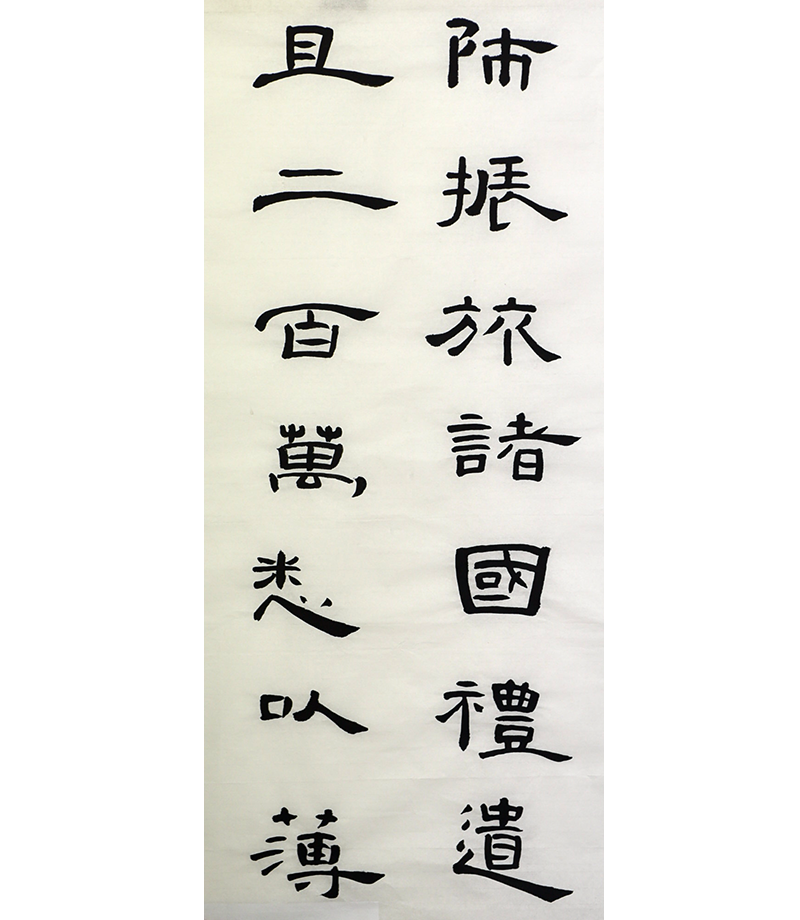 師振旅諸國禮遺
且二百萬悉以薄